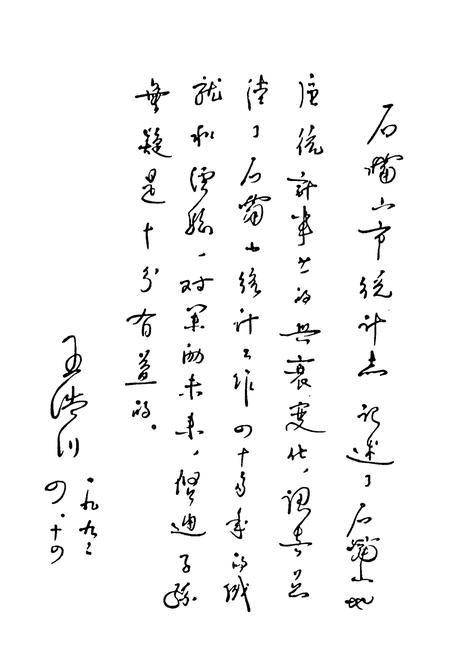 石嘴山市统计志记述了石嘴山地
区统计事业的兴衰变化，认真总
结了石嘴山统计工作四十多年的成
就和经验，对策励未来，启迪子孙
无疑是十分有益的。
王浩川
一九九二
四·十四